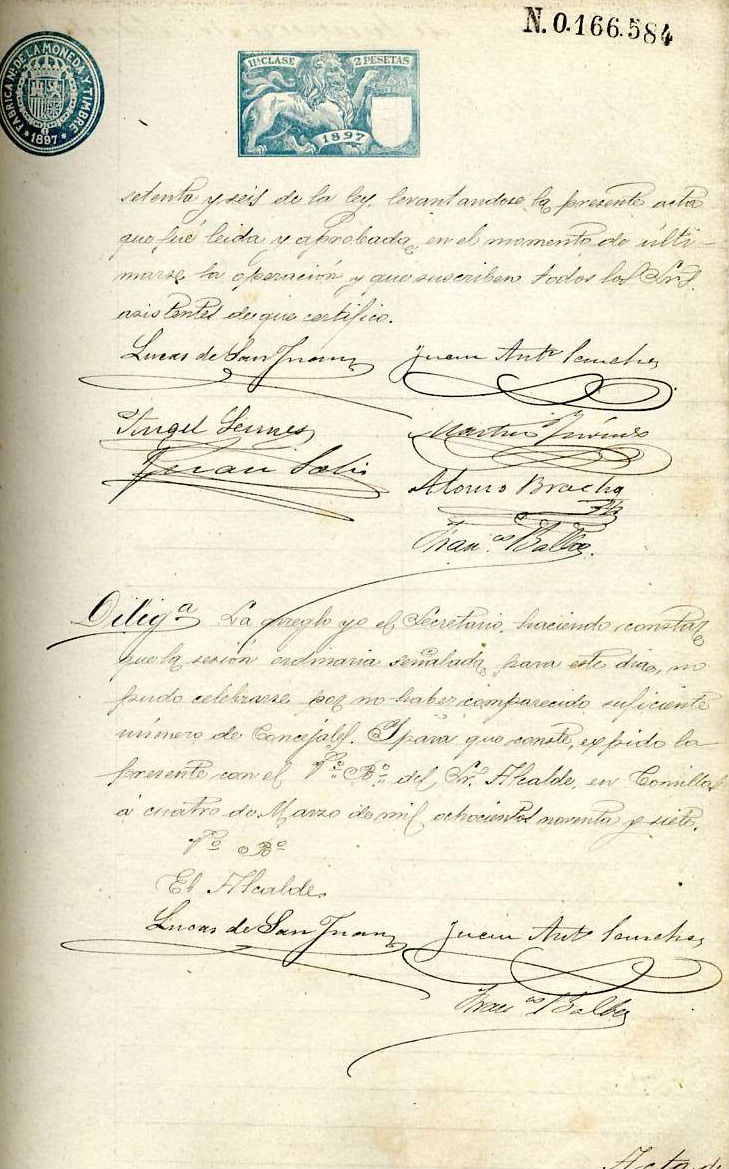 N. 0.166.584
FABRICA NAL DE LA MONEDA Y TIMBRE
* 1897 *
11ª CLASE 2 PESETAS
1897
setenta y seis de la ley, levantandose la presente acta
que fué leida y aprobada, en el momento de últi-
marse la operación y que suscriben todos los Srs.
asistentes de que certifico.
Lucas de San Juan Juan Antº Sanchez
Angel
Martin
Alonso Bracho
Franco Balbás
Diligª La arreglo yo el Secretario, haciendo constar,
que la sesión ordinaria señalada para este dia, no
pudo celebrarse por no haber comparecido suficiente
número de Concejales. Y para que conste, expido la
presente con el Vº Bº del Sr. Alcalde, en Comillas
á cuatro de Marzo de mil ochocientos noventa y siete.
Vº Bº
El Alcalde,
Lucas de San Juan Juan Antº Sanchez
Franco Balbás
Acta de